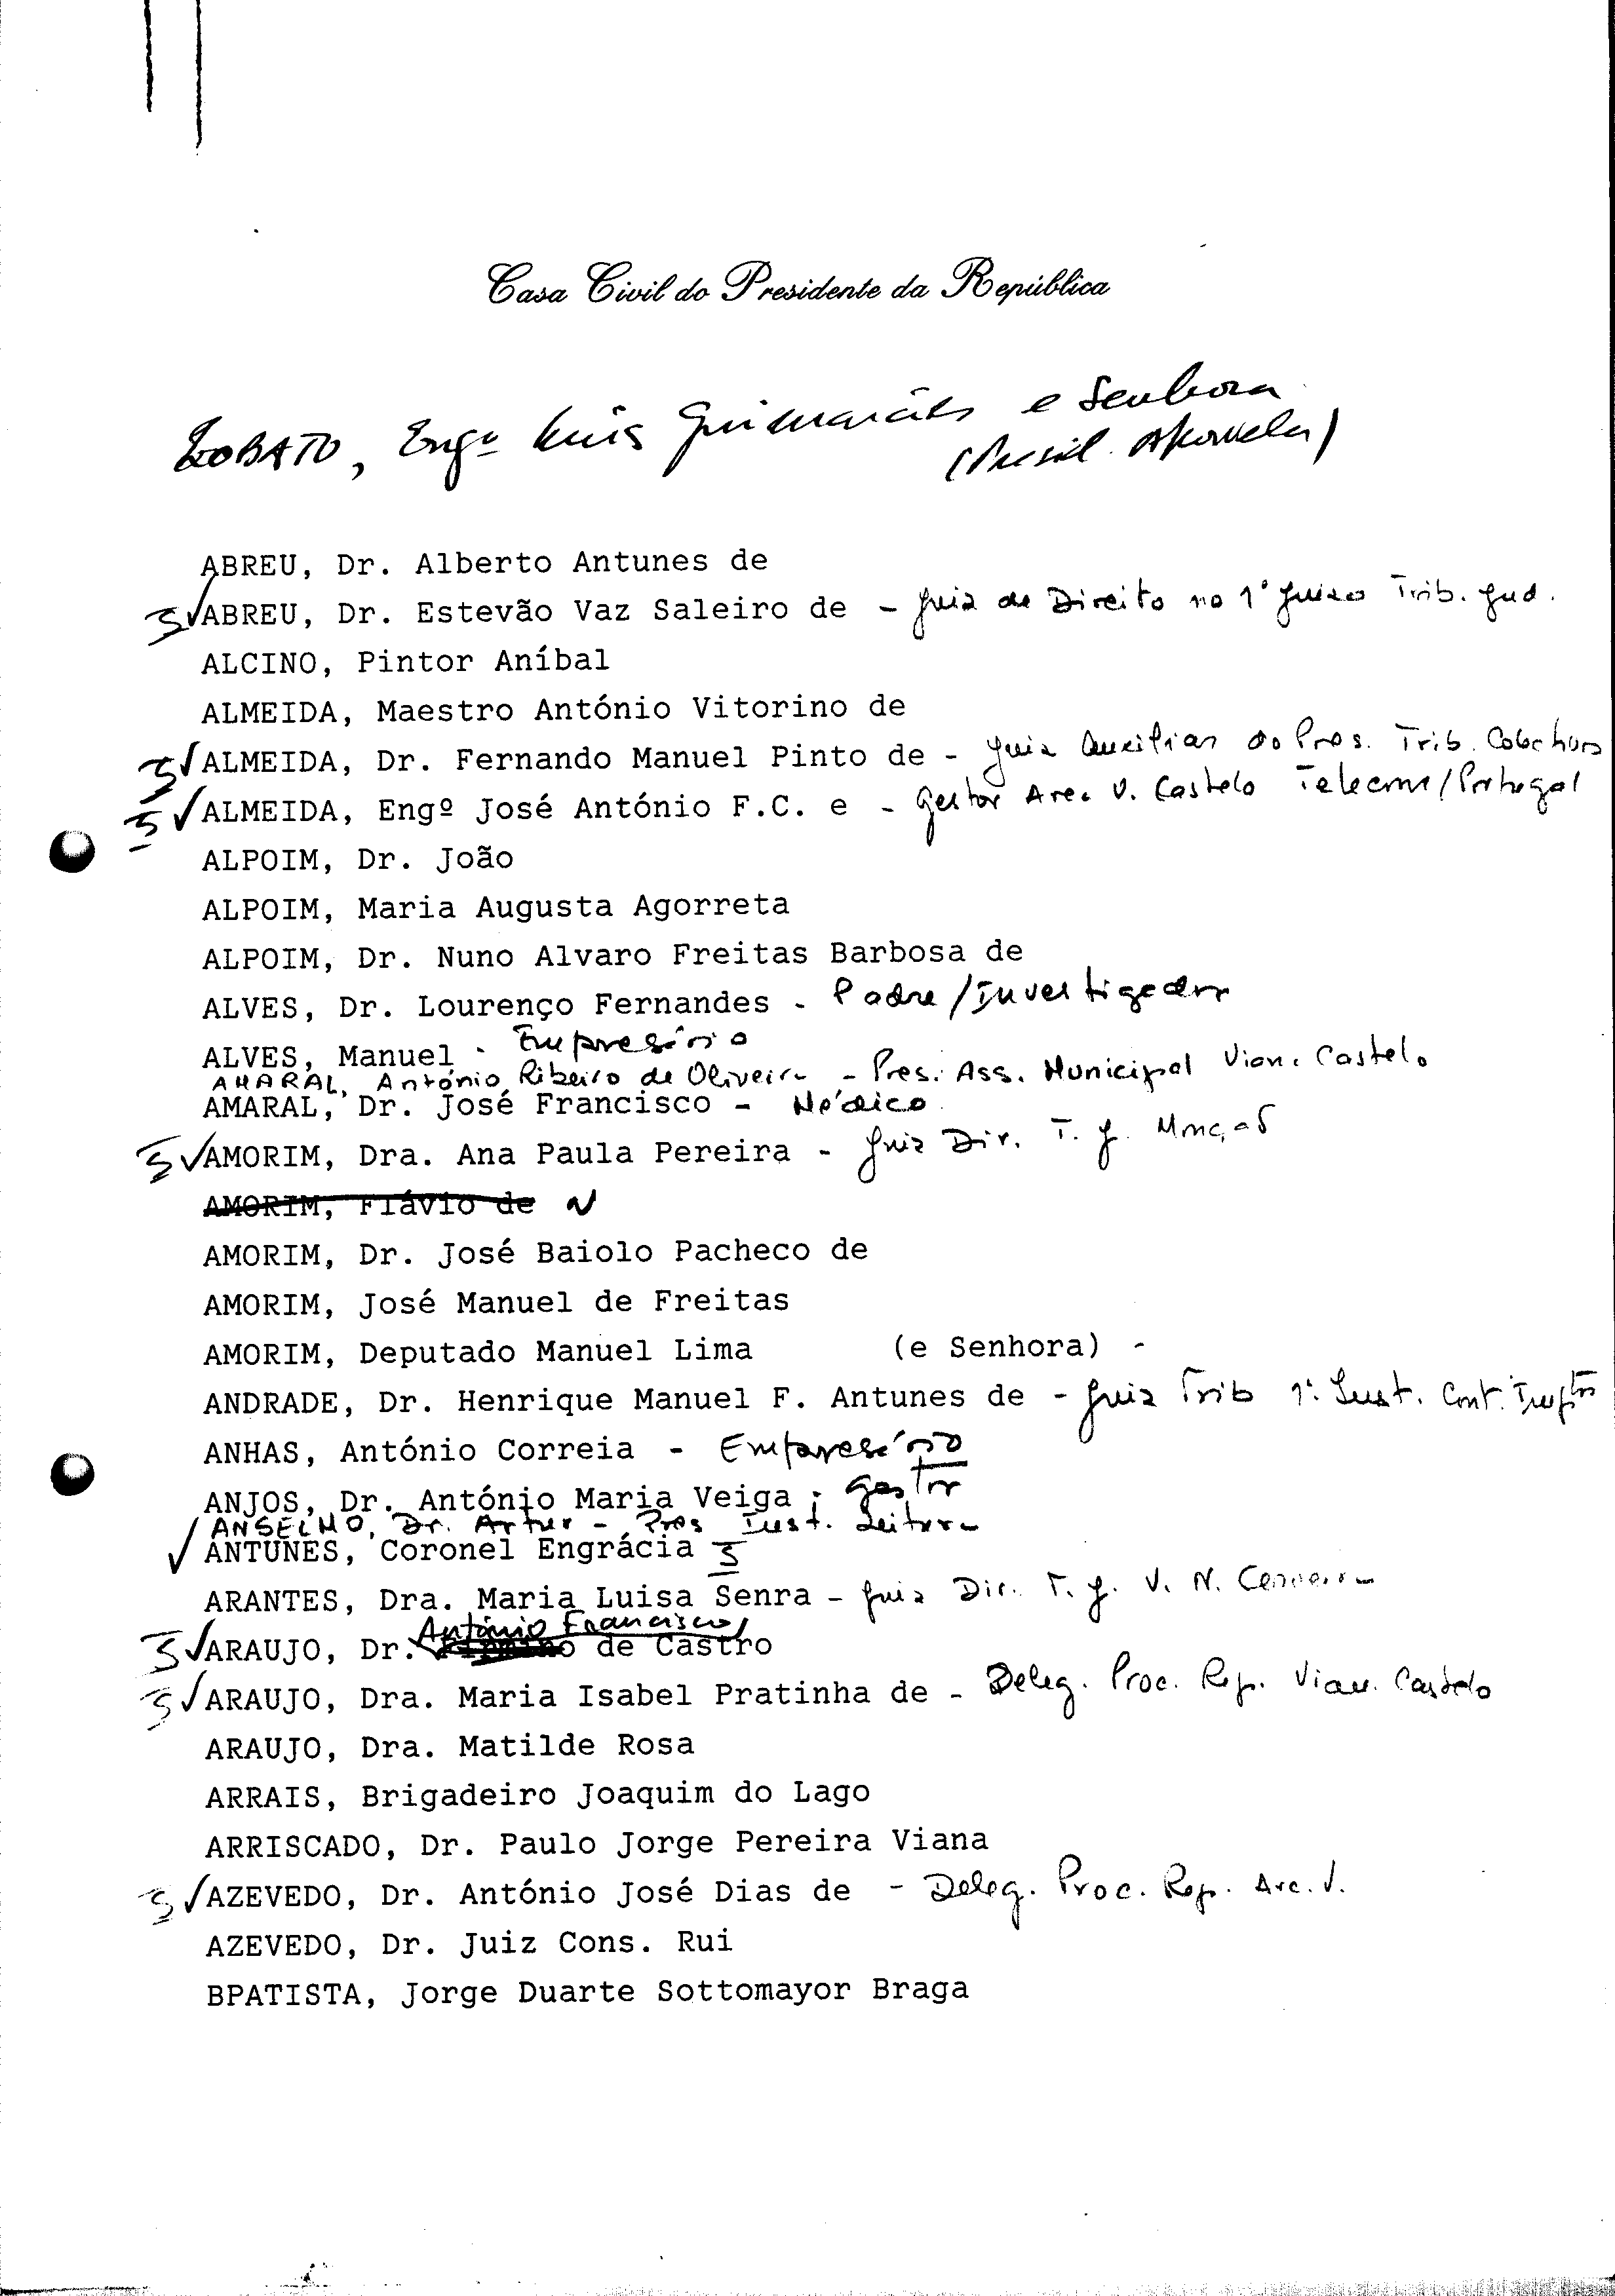 Casa Civil do Presidente da República
LOBATO, Engº Luis Guimarães e Senhora
ABREU, Dr. Alberto Antunes de
ABREU, Dr. Estevão Vaz Saleiro de - Juiz de Direito no 1º Juízo Trib. Jud.
ALCINO, Pintor Aníbal
ALMEIDA, Maestro António Vitorino de
ALMEIDA, Dr. Fernando Manuel Pinto de - Juiz Auxiliar do Pres. Trib.
ALMEIDA, Engº José António F.C. e - Gestor Area V. Castelo Telecom/Portugal
ALPOIM, Dr. João
ALPOIM, Maria Augusta Agorreta
ALPOIM, Dr. Nuno Alvaro Freitas Barbosa de
ALVES, Dr. Lourenço Fernandes - Padre/Investigador
ALVES, Manuel - Empresário
AMARAL, António Ribeiro de Oliveira - Pres. Ass. Municipal Viana Castelo
AMARAL, Dr. José Francisco - Médico
AMORIM, Dra. Ana Paula Pereira - Juiz Dir. T. J. Monção
AMORIM, Flávio de N
AMORIM, Dr. José Baiolo Pacheco de
AMORIM, José Manuel de Freitas
AMORIM, Deputado Manuel Lima (e Senhora) -
ANDRADE, Dr. Henrique Manuel F. Antunes de - Juiz Trib 1ª Inst. Cont.
ANHAS, António Correia - Empresário
ANJOS, Dr. António Maria Veiga - Gestor
ANSELMO, Dr. Artur - Pres Inst. Leitura
ANTUNES, Coronel Engrácia
ARANTES, Dra. Maria Luisa Senra - Juiz Dir. T. J. V. N. Cerveira
António Francisco
ARAUJO, Dr. de Castro
ARAUJO, Dra. Maria Isabel Pratinha de - Deleg. Proc. Rep. Vian. Castelo
ARAUJO, Dra. Matilde Rosa
ARRAIS, Brigadeiro Joaquim do Lago
ARRISCADO, Dr. Paulo Jorge Pereira Viana
AZEVEDO, Dr. António José Dias de - Deleg. Proc. Rep. Arc. V.
AZEVEDO, Dr. Juiz Cons. Rui
BPATISTA, Jorge Duarte Sottomayor Braga